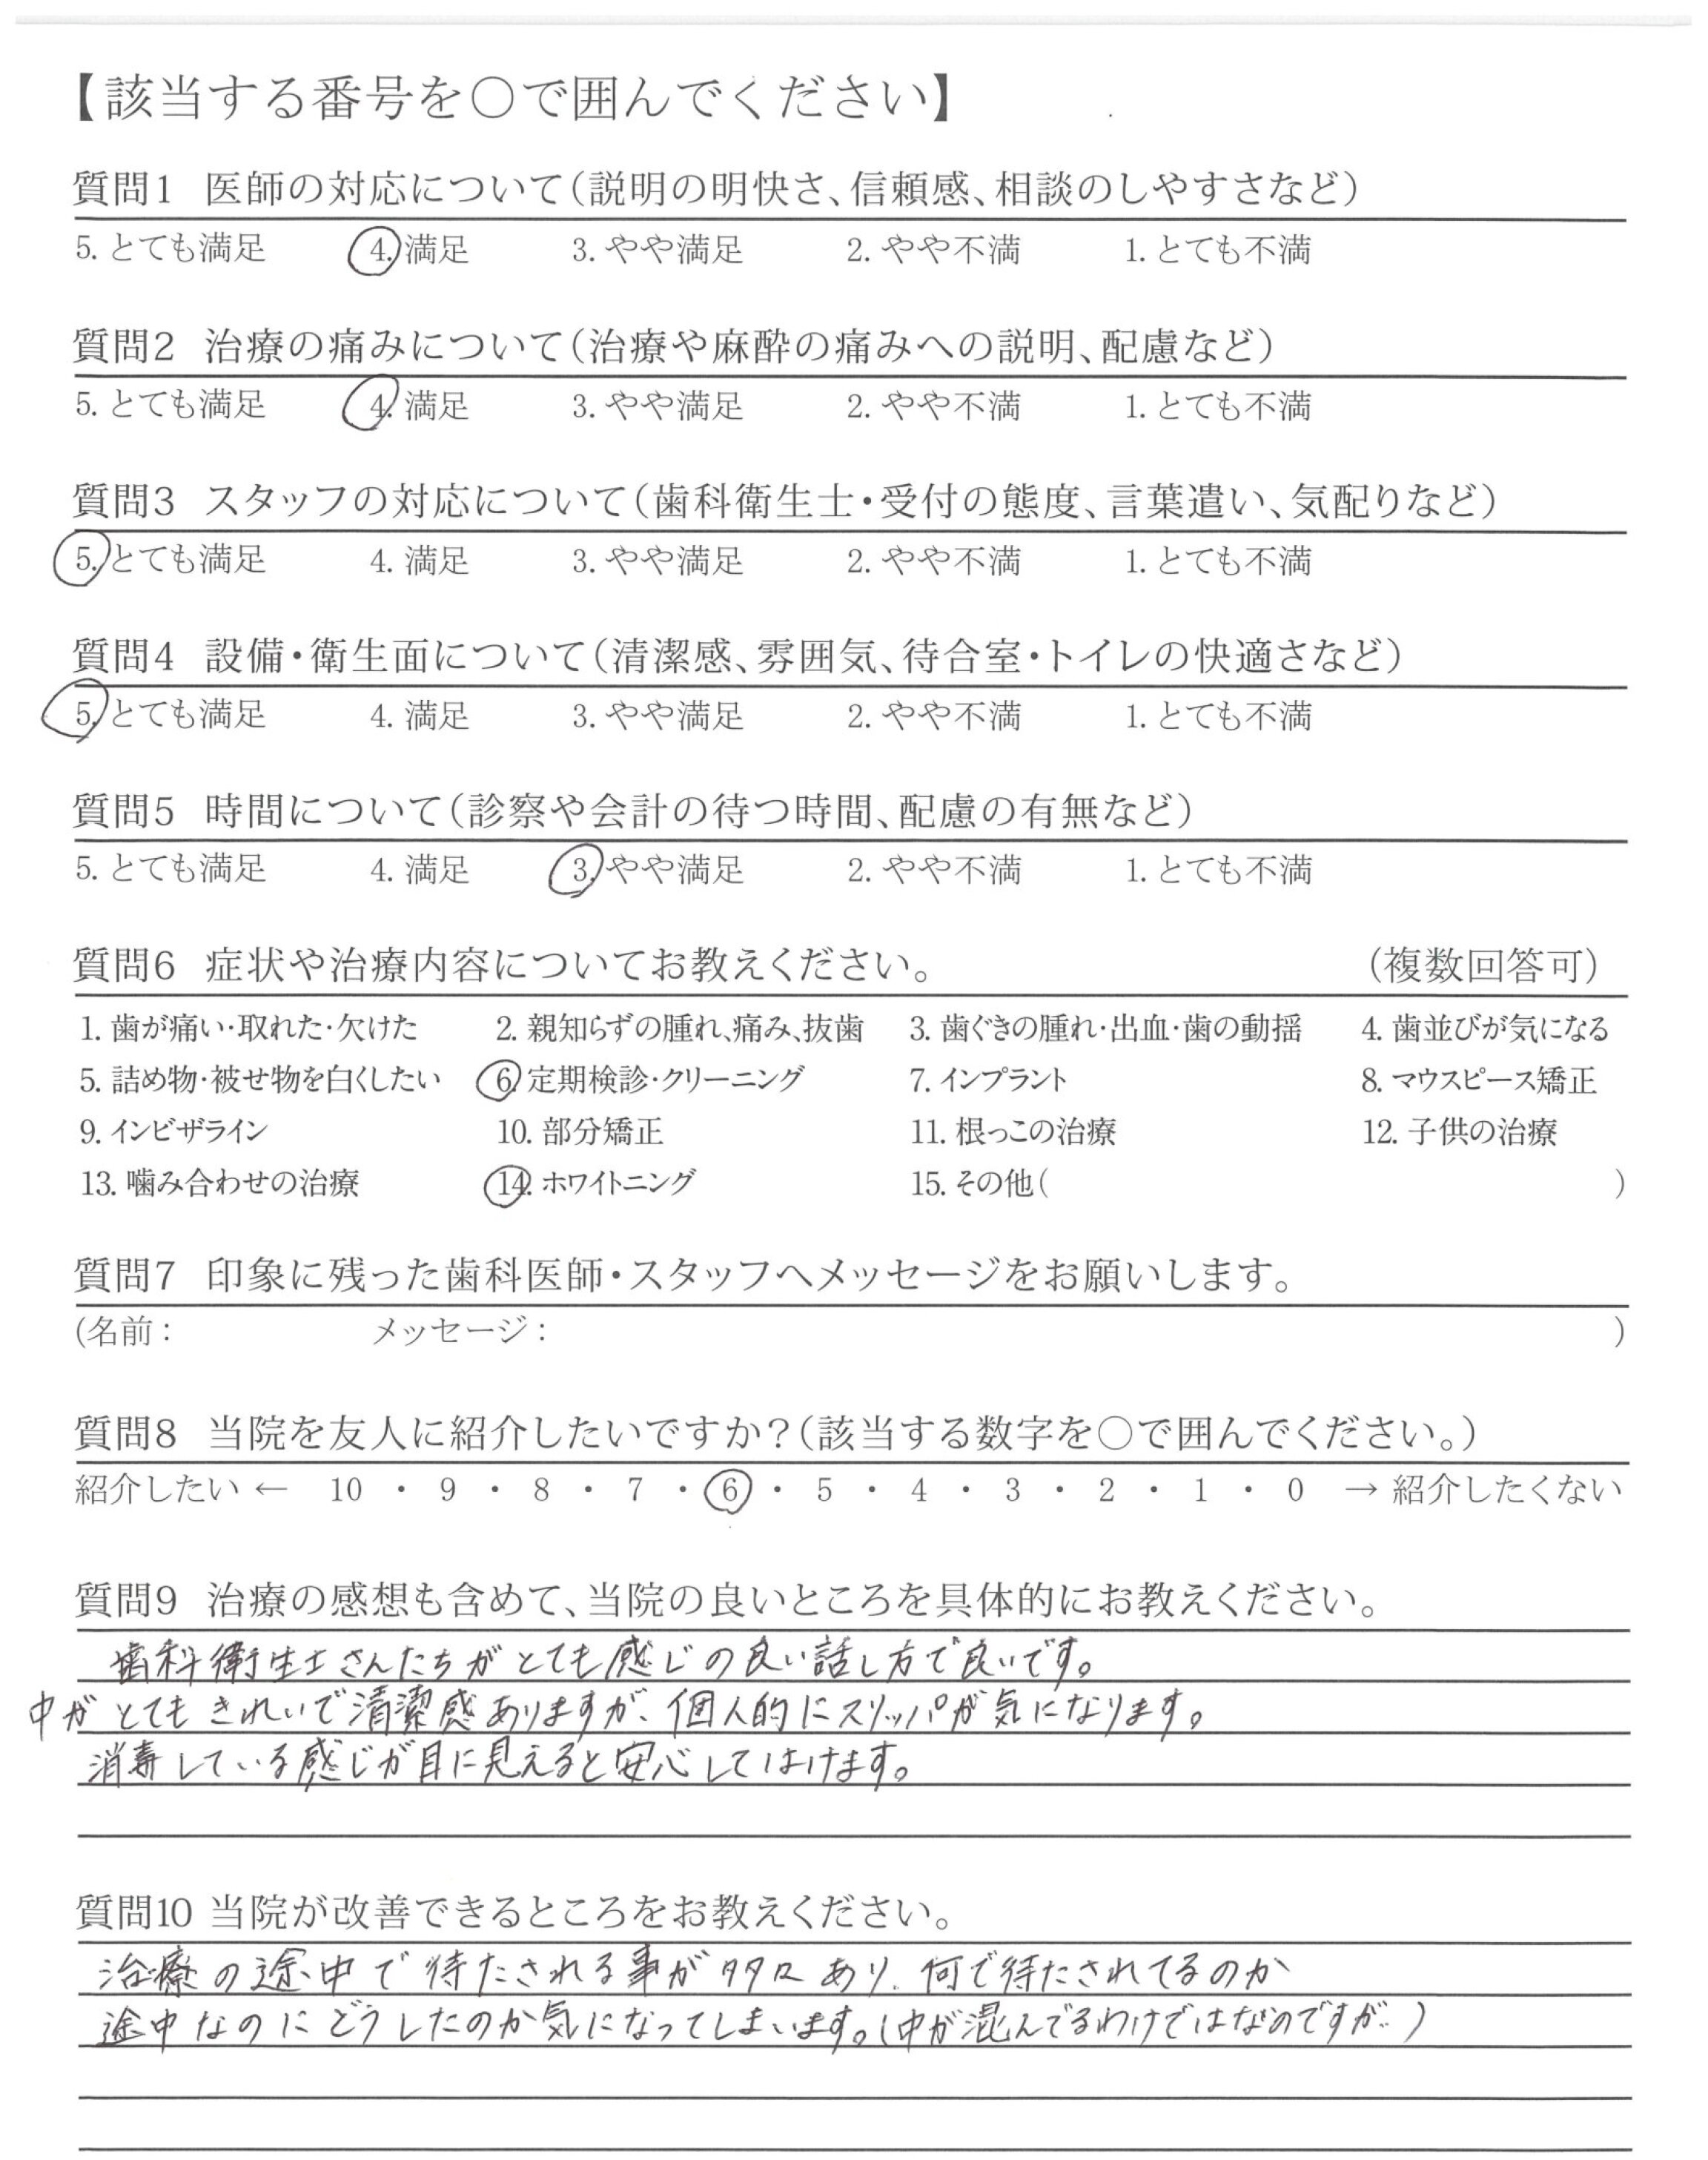 【該当する番号を○で囲んでください】
質問1 医師の対応について(説明の明快さ、信頼感、相談のしやすさなど)
5. とても満足 4. 満足 3. やや満足 2. やや不満 1. とても不満
質問2 治療の痛みについて(治療や麻酔の痛みへの説明、配慮など)
5. とても満足 4. 満足 3. やや満足 2. やや不満 1. とても不満
質問3 スタッフの対応について(歯科衛生士・受付の態度、言葉遣い、気配りなど)
5. とても満足 4. 満足 3. やや満足 2. やや不満 1. とても不満
質問4 設備・衛生面について(清潔感、雰囲気、待合室・トイレの快適さなど)
5. とても満足 4. 満足 3. やや満足 2. やや不満 1. とても不満
質問5 時間について(診察や会計の待つ時間、配慮の有無など)
5. とても満足 4. 満足 3. やや満足 2. やや不満 1. とても不満
質問6 症状や治療内容についてお教えください。 (複数回答可)
1. 歯が痛い・取れた・欠けた 2. 親知らずの腫れ、痛み、抜歯 3. 歯ぐきの腫れ・出血・歯の動揺 4. 歯並びが気になる
5. 詰め物・被せ物を白くしたい 6. 定期検診・クリーニング 7. インプラント 8. マウスピース矯正
9. インビザライン 10. 部分矯正 11. 根っこの治療 12. 子供の治療
13. 噛み合わせの治療 14. ホワイトニング 15. その他( )
質問7 印象に残った歯科医師・スタッフへメッセージをお願いします。
(名前: メッセージ: )
質問8 当院を友人に紹介したいですか?(該当する数字を○で囲んでください。)
紹介したい ← 10 ・ 9 ・ 8 ・ 7 ・ 6 ・ 5 ・ 4 ・ 3 ・ 2 ・ 1 ・ 0 → 紹介したくない
質問9 治療の感想も含めて、当院の良いところを具体的にお教えください。
歯科衛生士さんたちがとても感じの良い話し方で良いです。
中がとてもきれいで清潔感ありますが、個人的にスリッパが気になります。
消毒している感じが目に見えると安心してはけます。
質問10 当院が改善できるところをお教えください。
治療の途中で待たされる事が多々あり、何で待たされてるのか
途中なのにどうしたのか気になってしまいます。(中が混んでるわけではなのですが..)